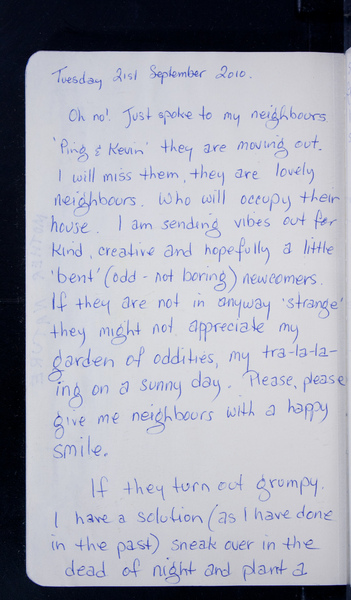 Tuesday 21st September 2010.
Oh no! Just spoke to my neighbours
'Ping & Kevin' they are moving out.
I will miss them, they are lovely
neighbours. Who will occupy their
house. I am sending vibes out for
kind, creative and hopefully a little
'bent' (odd - not boring) newcomers.
If they are not in anyway 'strange'
they might not appreciate my
garden of oddities, my tra-la-la-
ing on a sunny day. Please, please
give me neighbours with a happy
smile.
If they turn out grumpy.
I have a solution (as I have done
in the past) sneak over in the
dead of night and plant a